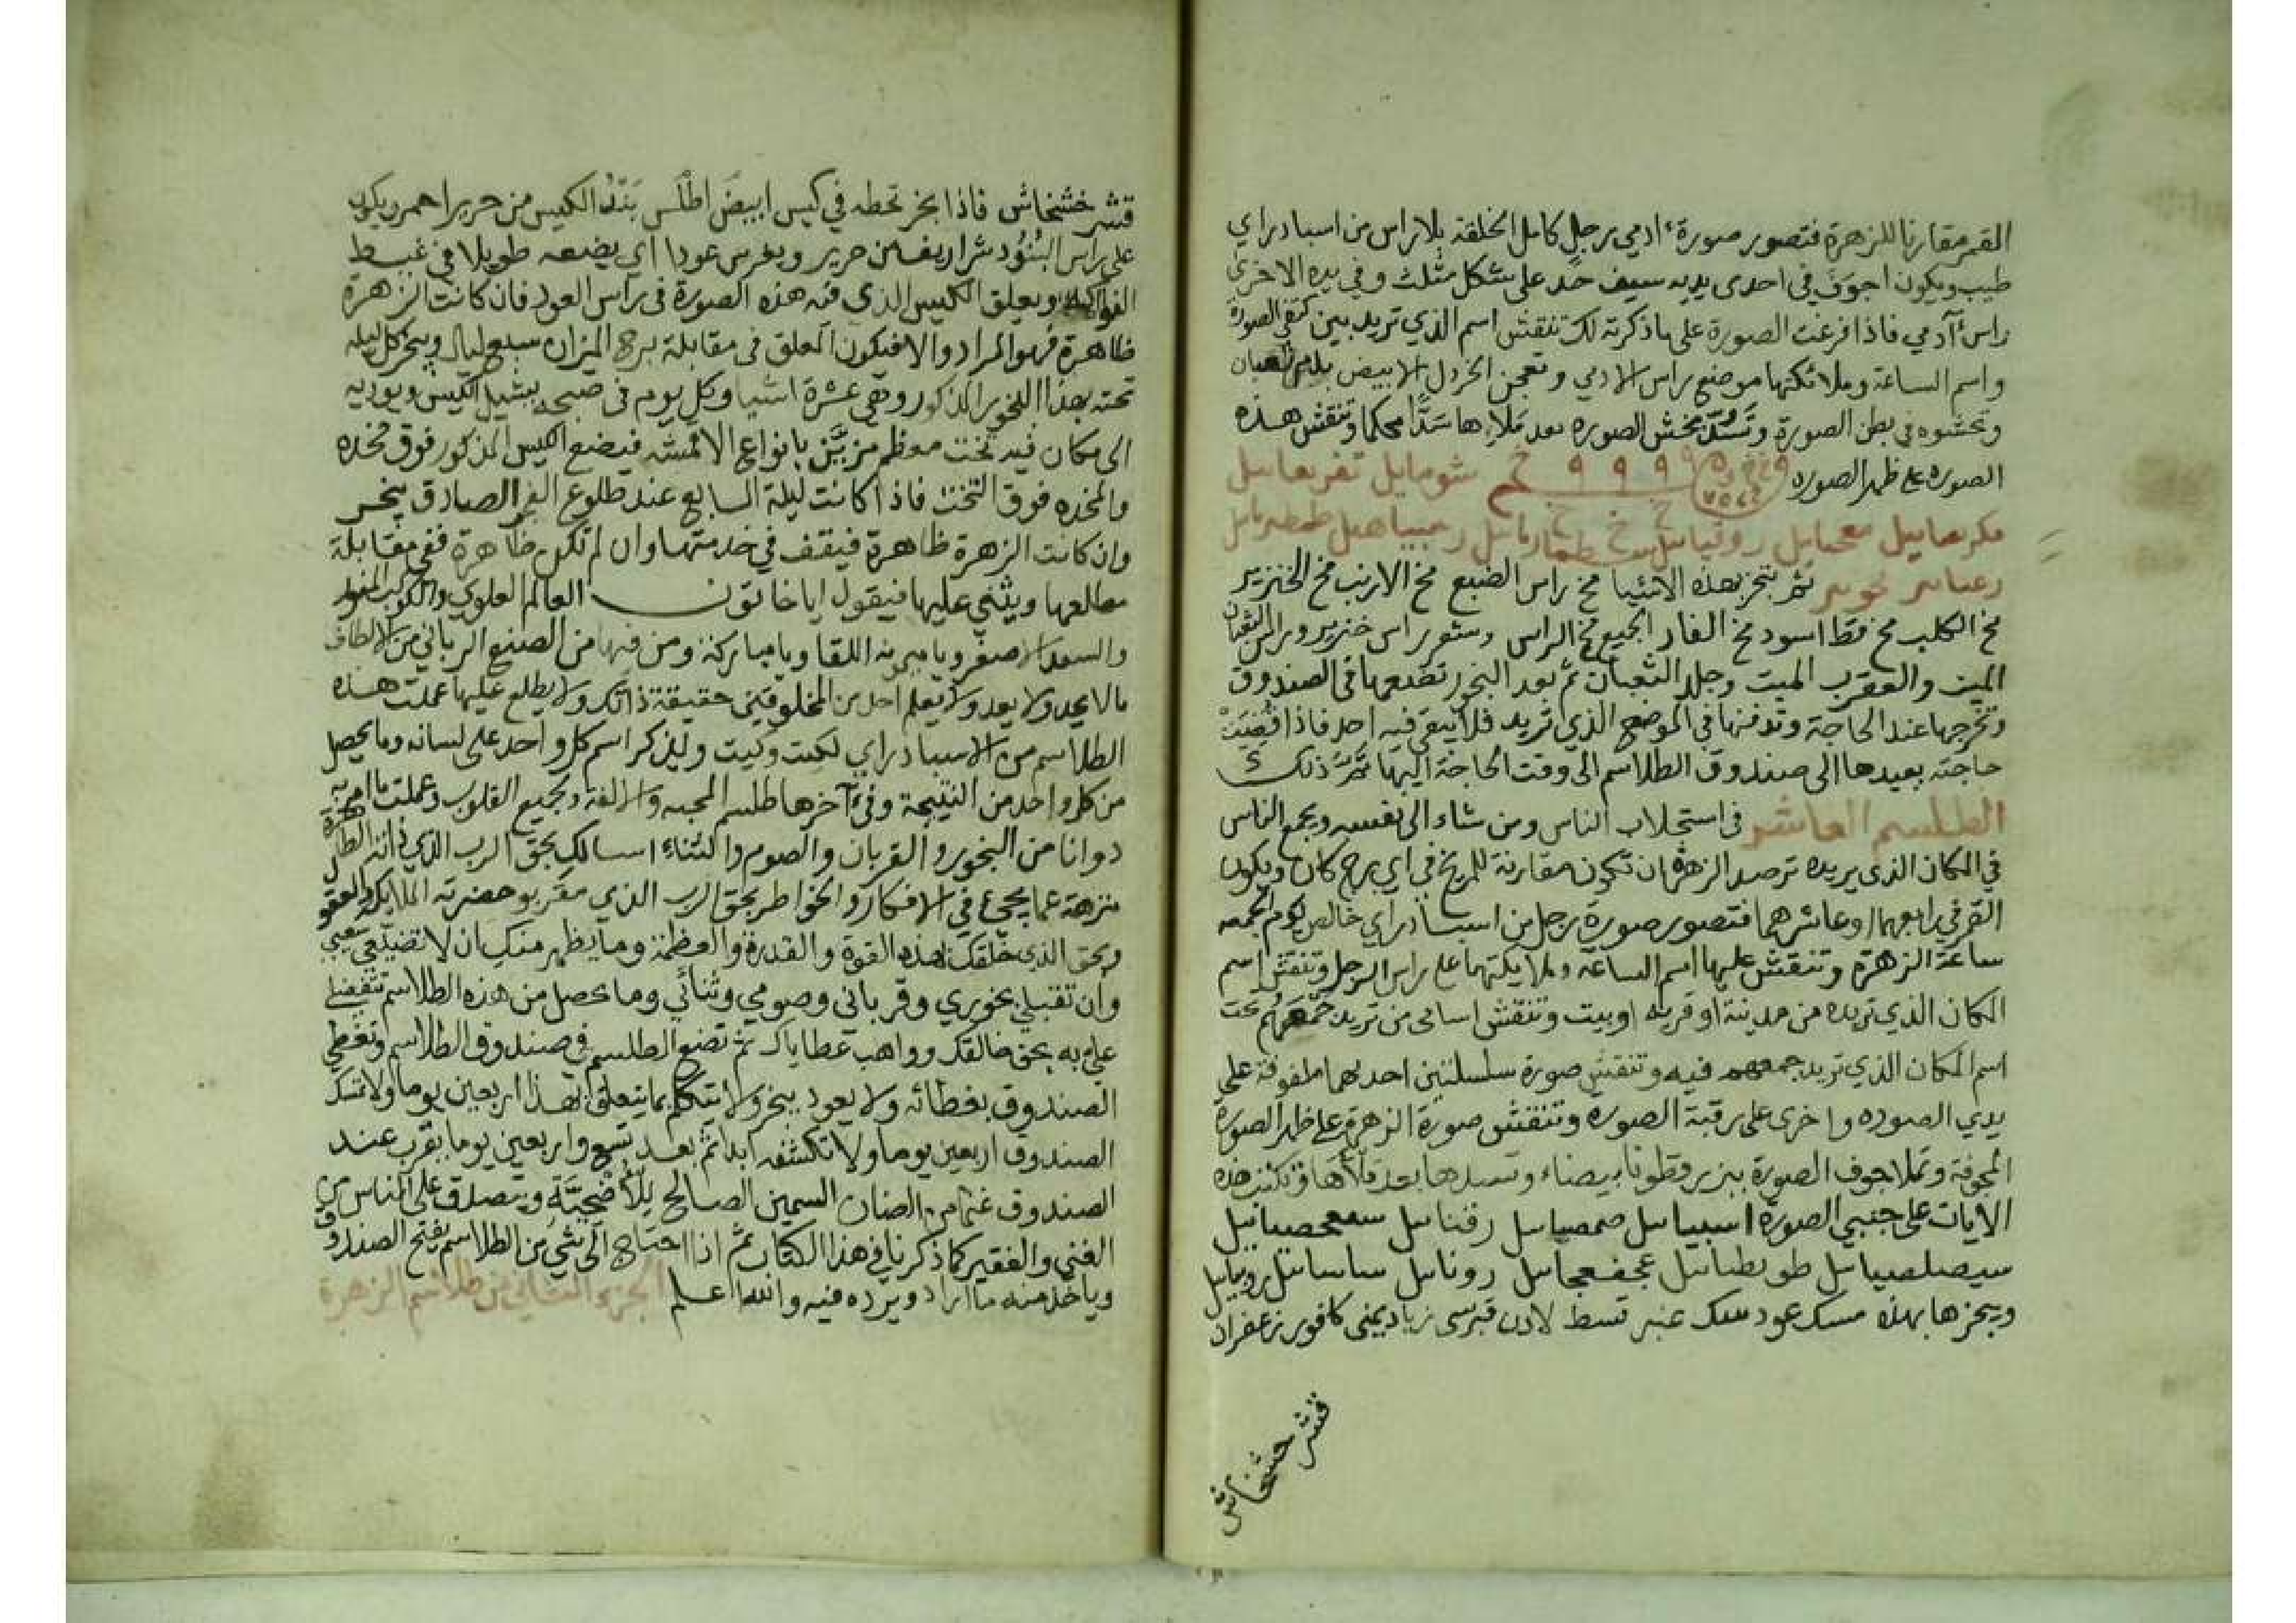 القمر مقارنا للزهرة فتصور صورة ادمي برجل كامل الخلقة بلا راس من اسبادراي
طيب ويكون اجوف في احدى يديه سيف حد على شكل مثلث وفي يده الاخرى
راس آدمي فاذا فرغت الصورة على ما ذكرته لك تنقش اسم الذي تريد بين كتفي الصورة
واسم الساعة وملائكتها موضع راس الادمي وتعجن الخردل الابيض بدم ثعبان
وتحشوه في بطن الصورة وتسد مخش الصوره بعد ملاءها سدا محكما وتنقش هذه
الصوره على ظهر الصوره ٩ ٩ ٩ شومايل
ثم تبخر بهذه الاشيا مخ راس الضبع مخ الارنب مخ الخنزير
مخ الكلب مخ قط اسود مخ الفار الجميع مخ الراس وشعر راس خنزير وراس الثعبان
الميت والعقرب الميت وجلد الثعبان ثم بعد البخور تضعها في الصندوق
وتخرجها عند الحاجة وتدفنها في الموضع الذي تريد فلا يبقى فيه احد فاذا قضيت
حاجته يعيدها الى صندوق الطلاسم الى وقت الحاجة اليها تم ذلك
الطلسم العاشر في استجلاب الناس ومن شاء الى نفسه ويجمع الناس
في المكان الذي يريده ترصد الزهرة ان تكون مقارنة للمريخ في اي برج كان ويكون
القمر في رابعهما او عاشرهما فتصور صورة رجل من اسبادراي خالص يوم الجمعه
ساعة الزهرة وتنقش عليها اسم الساعة وملايكتها على راس الرجل وتنقش اسم
المكان الذي تريده من مدينة او قرية او بيت وتنقش اسامى من تريد جمعهم تحت
اسم المكان الذي تريد جمعهم فيه وتنقش صورة سلسلتين احدهما ملفوفة على
يدي الصوره واخرى على رقبة الصوره وتنقش صورة الزهرة على ظهر الصورة
المجوفة وتملا جوف الصورة ببزر قطونا بيضاء وتسدها بعد ملأها وتكتب هذه
الايات على جنبي الصورة
ويبخرها بهذه مسك عود سك عنبر قسط لادن قبرسي زباد يمني كافور زعفران
قشر خشخاش
قشر خشخاش فاذا بخر تحطه في كيس ابيض اطلس بند الكيس من حرير احمر ويكون
على راس البنود شراريف من حرير ويغرس عودا اي يضعه طويلا في غبط
الفواكه ويعلق الكيس الذي فيه هذه الصورة في راس العود فان كانت الزهرة
ظاهرة فهو المراد والا فيكون المعلق في مقابلة برج الميزان سبع ليال ويبخر كل ليله
تحته بهذا البخور المذكور وهي عشرة اشيا وكل يوم في صبحه يشيل الكيس ويوديه
الى مكان فيه تخت معظم مزين بانواع الاقمشه فيضع الكيس المذكور فوق مخده
والمخده فوق التخت فاذا كانت ليلة السابع عند طلوع الفجر الصادق يبخر
وان كانت الزهرة ظاهرة فيقف في خدمتها وان لم تكن ظاهرة ففي مقابلة
مطلعها ويثني عليها فيقول ايا خاتون العالم العلوي والكوكب المنور
والسعد الاصغر ويا ميمونه اللقا ويا مباركة ومن فيها من الصنع الرباني من الالطاف
مالا يحد ولا يعد ولا يعلم احد من المخلوقين حقيقة ذاتك ولا يطلع عليها عملت هذه
الطلاسم من الاسبادراي لكيت وكيت وليذكر اسم كل واحد على لسانه وما يحصل
من كل واحد من النتيجة وفي آخرها طلسم المحبه والالفة وتجميع القلوب وعملت ما امر به
دوانا من البخور والقربان والصوم والثناء اسالك بحق الرب الذي ذاته الطاهرة
منزهة عما يجيء في الافكار والخواطر بحق الرب الذي مقربو حضرته الملايكه والعقول
وبحق الذي خلقك لهذه القوة والقدرة والعظمة وما يظهر منك ان لا تضيعي تعبي
وان تقبلي بخوري وقرباني وصومي وثنائي وما يحصل من هذه الطلاسم تتفضلي
علي به بحق خالقك وواهب عطاياك ثم تضع الطلسم في صندوق الطلاسم وتغطي
الصندوق بغطائه ولا يعود يبخر ولا يتكلم بما يتعلق بهذا اربعين يوما ولا تمسك
الصندوق اربعين يوما ولا تكشفه ابدا ثم بعد تسع واربعين يوما يقرب عند
الصندوق غنما من الضان السمين الصالح للأضحية ويتصدق على الناس من
الغني والفقير كما ذكرنا في هذا الكتاب ثم اذا احتاج الى شيء من الطلاسم يفتح الصندوق
وياخذ منه ما اراد ويرده فيه والله اعلم الجزء الثاني من طلاسم الزهرة